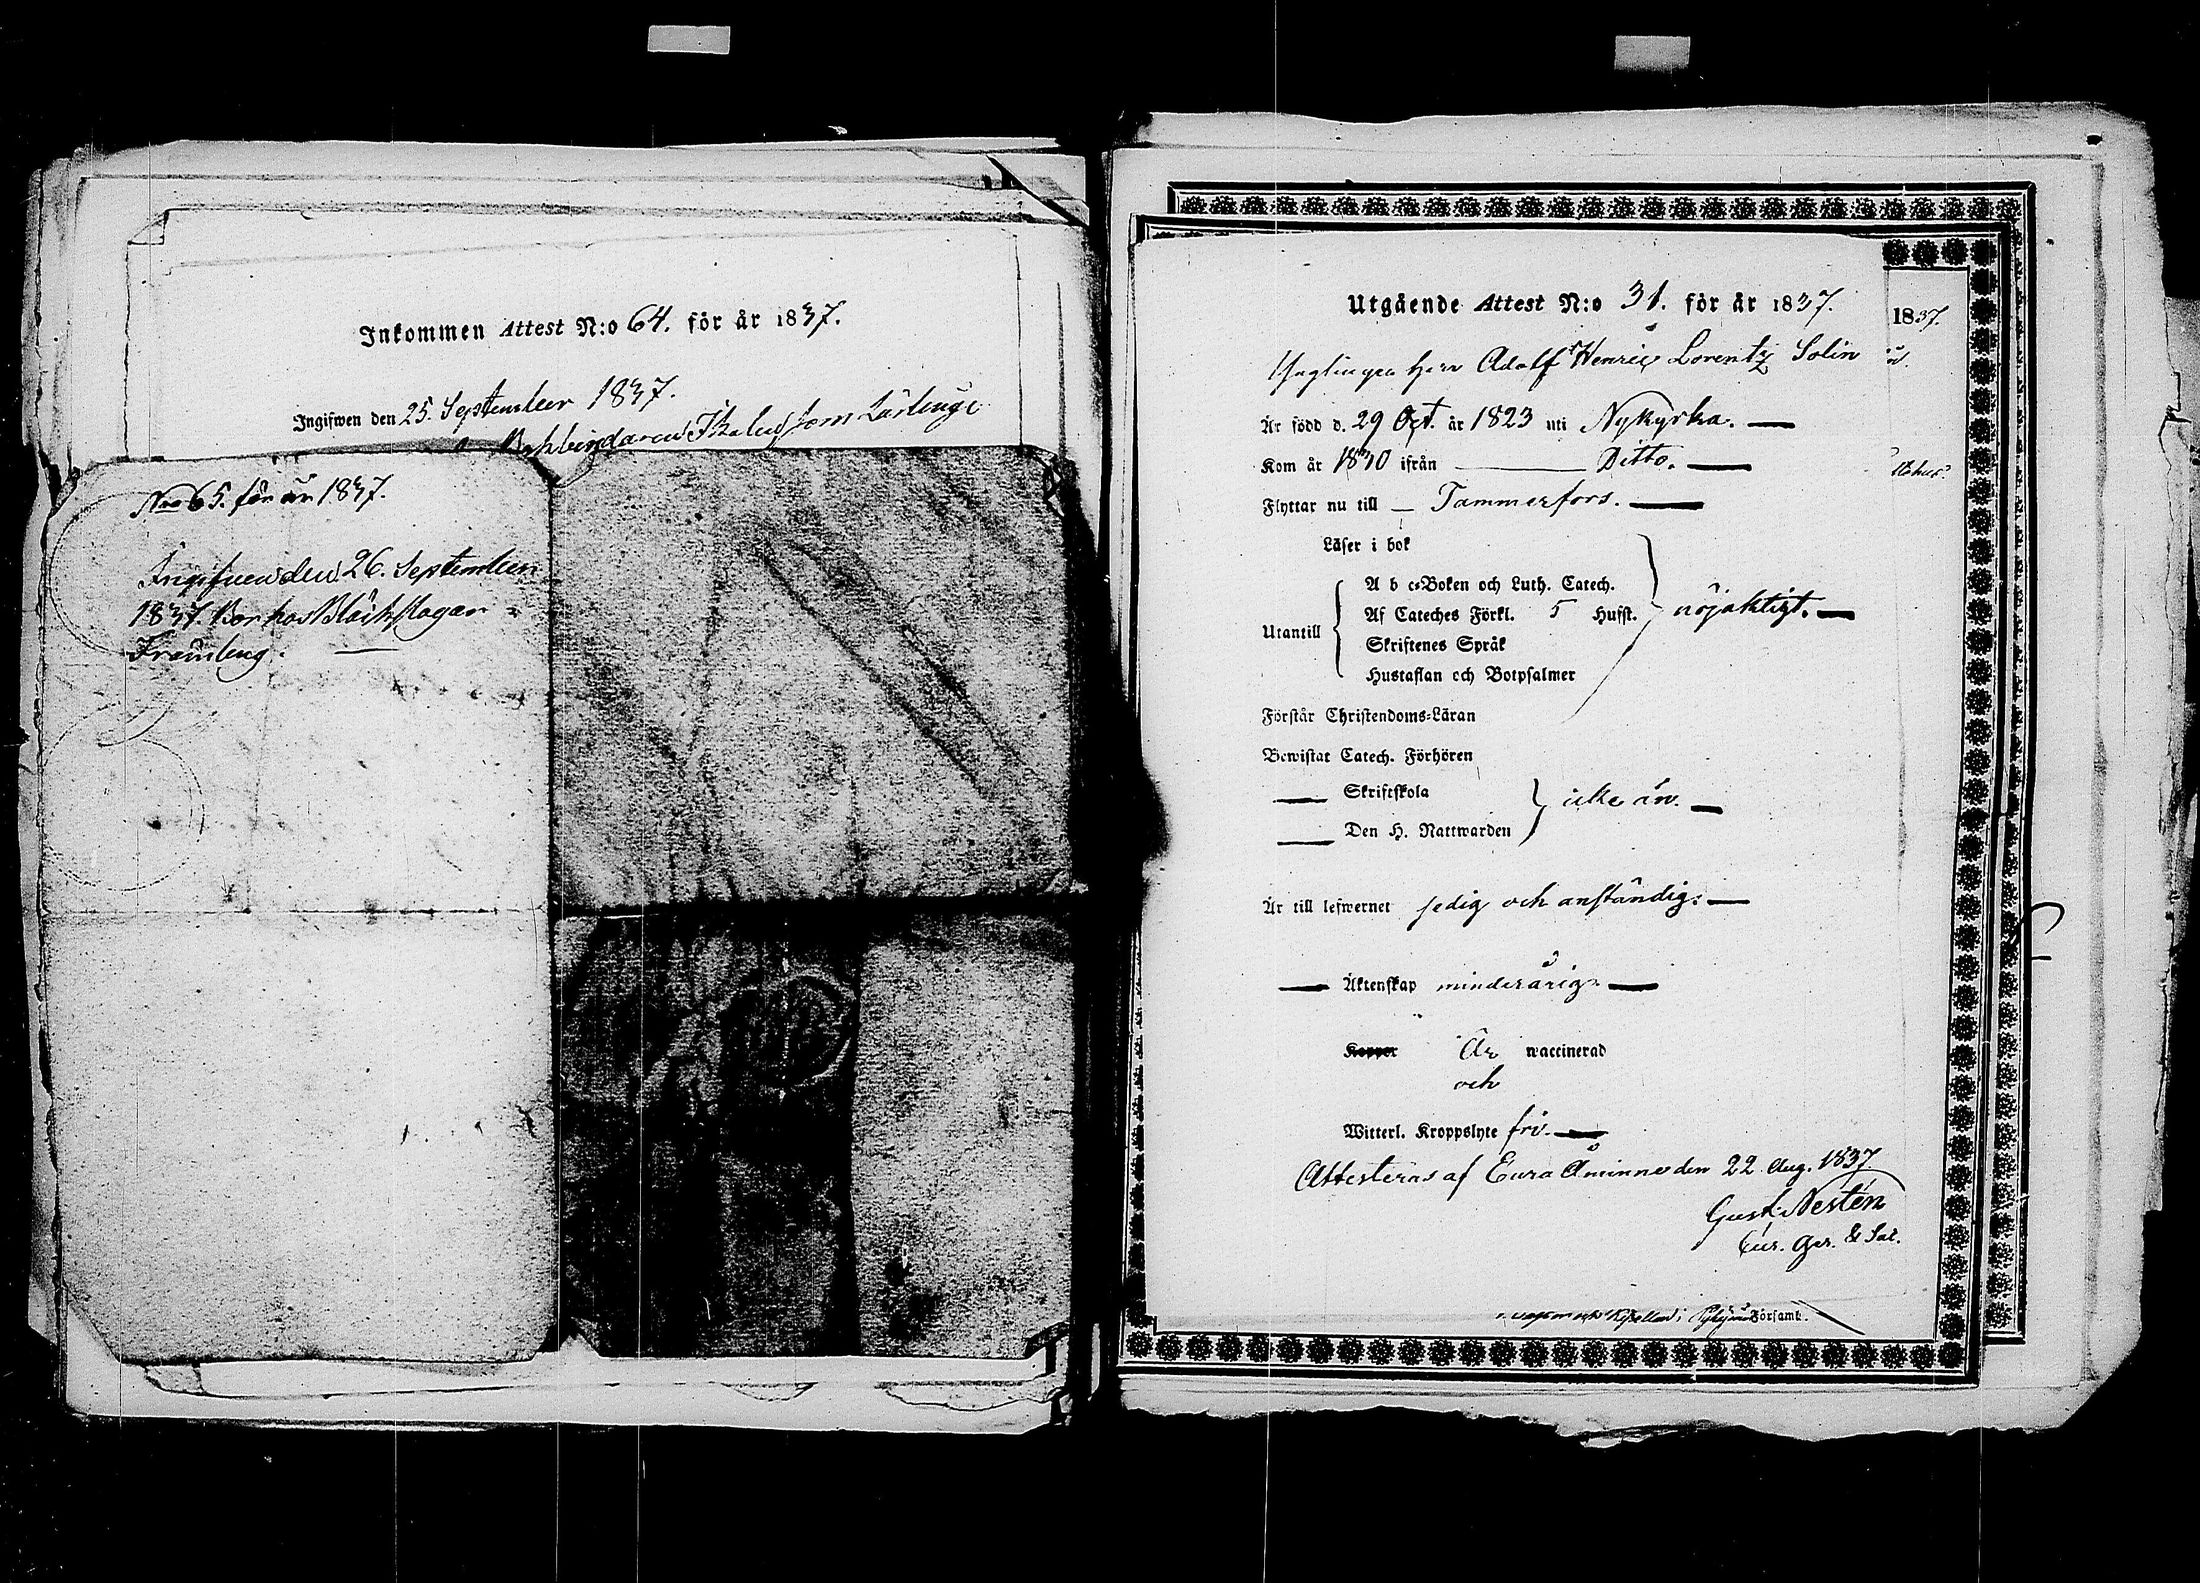 Inkommen Attest N:o 64. för år 1837.
Ingifwen den 25. September 1837.
Bokbindaren som Lärlinge
No 65. för år 1837.
Ingifven den 26. September
1837. Bor hos Bläckslagar
Framberg.
Utgående Attest N:o 31. för år 1837.
Ynglingen Herr Adolf Henric Lorentz Solin
Är född d. 29 Oct. år 1823 uti Nykyrka.
Kom år 1830 ifrån Ditto.
Flyttar nu till Tammerfors.
Läser i bok
A b c-Boken och Luth. Catech.
Af Cateches Förkl. 5 Hufst. nöjaktigt.
Utantill
Skriftenes Språk
Hustaflan och Botpsalmer
Förstår Christendoms-Läran
Bewistat Catech. Förhören
Skriftskola
icke än.
Den H. Nattwarden
Är till lefwernet sedig och anständig.
Äktenskap minderårig.
Koppor Är waccinerad
och
Witterl. Kroppslyte fri.
Attesteras af Eura Åminne den 22 Aug. 1837
Gust. Nestén
Cur. Ger. & Sac.
Församl.
1837.